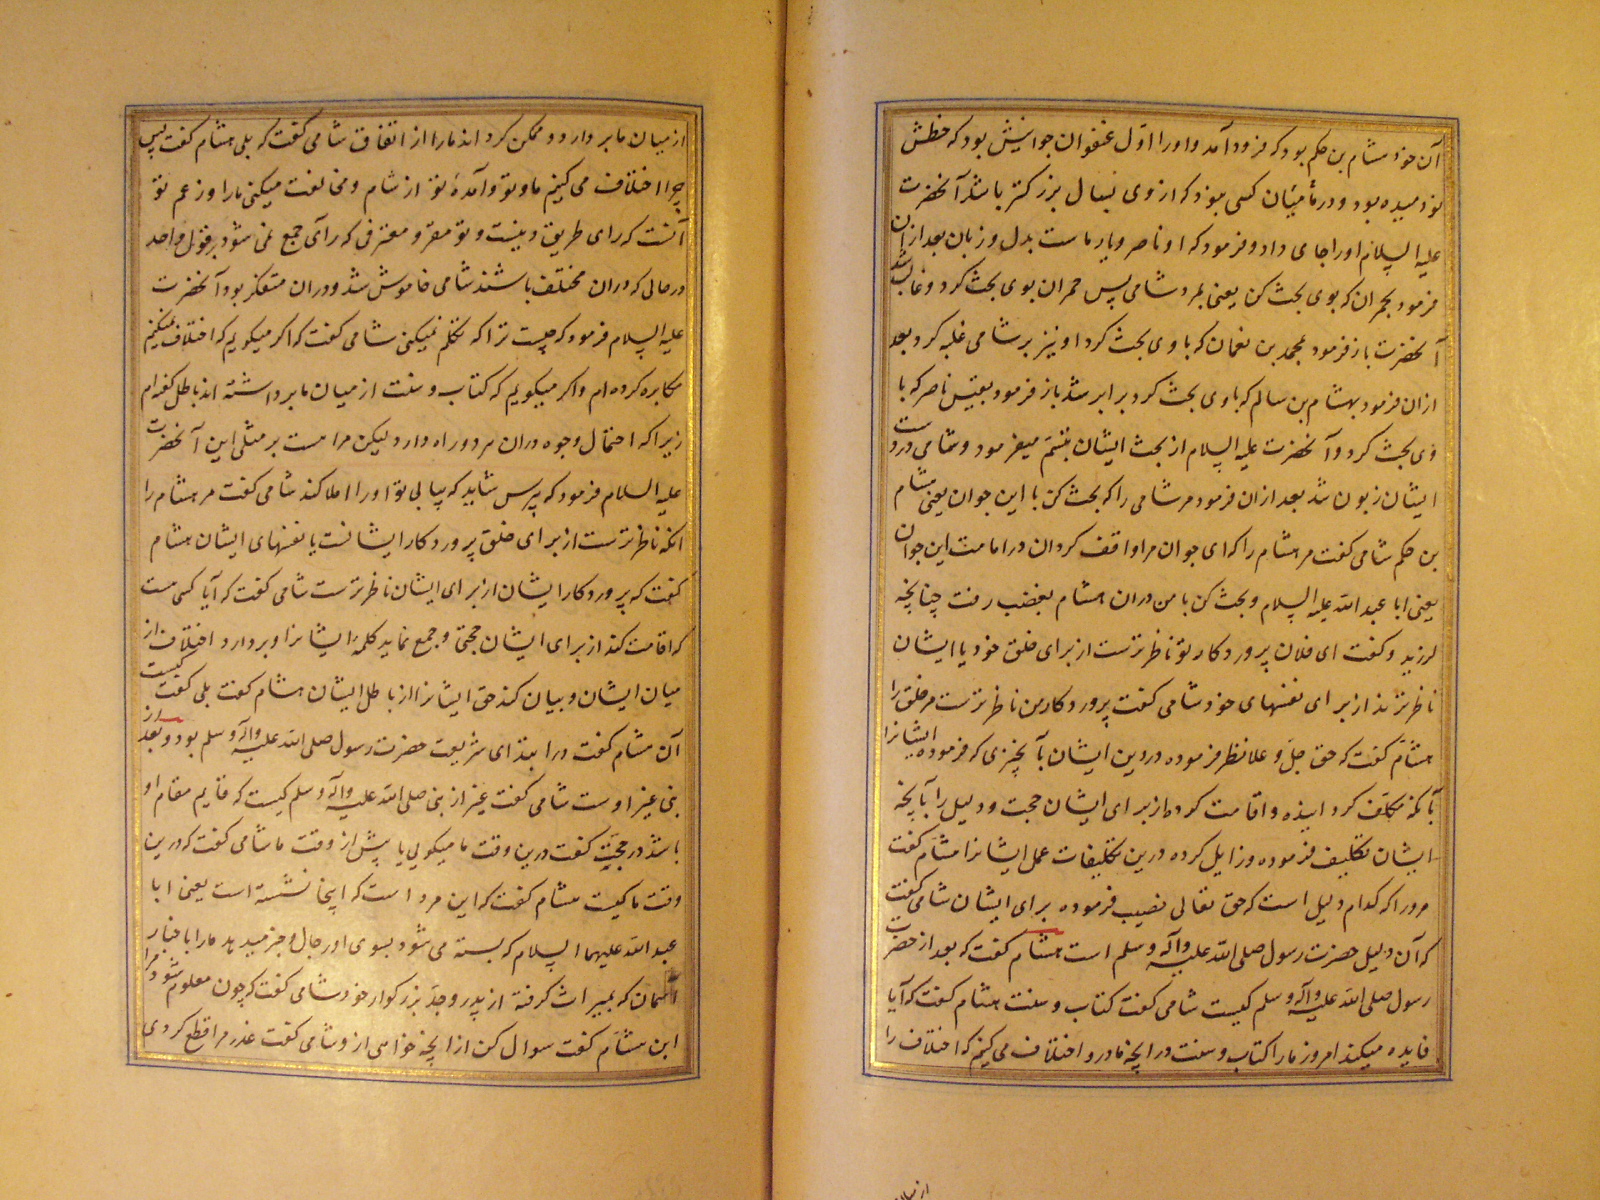 آن خود هشام بن حکم بود که فرود آمد و او را اول عنفوان جوانیش بود که خطش
نو دمیده بود و در ما میان کسی نبود که از وی بسال بزرکتر باشد آنحضرت
علیه السلام او را جای داد و فرمود که او ناصر و یار ماست بدل و زبان بعد از ان
فرمود بحمران که بوی بحث کن یعنی بمرد شامی پس حمران بوی بحث کرد و غالب شد
آنحضرت باز فرمود بمحمد بن نعمان که با وی بحث کرد او نیز بر شامی غلبه کرد بعد
از ان فرمود بهشام بن سالم که با وی بحث کرد برابر شد باز فرمود بقیس ناصر که با
وی بحث کرد و آنحضرت علیه السلام از بحث ایشان تبسم میفرمود و شامی در دست
ایشان زبون شد بعد از ان فرمود مر شامی را که بحث کن با این جوان یعنی هشام
بن حکم شامی کفت مر هشام را که ای جوان مرا واقف کردان در امامت این جوان
یعنی ابا عبد الله علیه السلام و بحث کن با من دران هشام بغضب رفت چنانچه
لرزید و کفت ای فلان پروردکار تو ناظرترست از برای خلق خود یا ایشان
ناظرترند از برای نفسهای خود شامی کفت پروردکار من ناظرترست مر خلق را
هشام کفت که حق جل و علا نظر فرموده در دین ایشان بآنچیزی که فرموده ایشانرا
بآنکه مکلف کردانیده و اقامت کرده از برای ایشان حجت و دلیل را بآنچه
ایشان تکلیف فرموده و زایل کرده درین تکلیفات عمل ایشانرا هشام کفت
مرو را که کدام دلیل است که حق تعالی نصیب فرموده برای ایشان شامی کفت
که آن دلیل حضرت رسول صلی الله علیه وآله وسلم است هشام کفت که بعد از حضرت
رسول صلی الله علیه وآله وسلم کیست شامی کفت کتاب و سنت هشام کفت که آیا
فایده میکند امروز ما را کتاب و سنت در آنچه ما درو اختلاف می کنیم که اختلاف را
از میان
از میان ما بردارد و ممکن کرداند ما را از اتفاق شامی کفت که بلی هشام کفت پس
چرا اختلاف می کنیم ما و تو و آمدهٔ تو از شام و مخالفت میکنی ما را و زعم تو
آنست که رای طریق دینست و تو مقر و معترفی که رای جمع نمی شود بر قول واحد
در حالی که دران مختلف باشند شامی خاموش شد و دران متفکر بود آنحضرت
علیه السلام فرمود که چیست ترا که تکلم نمیکنی شامی کفت که اکر میکویم که اختلاف نمیکنیم
مکابره کرده ام و اکر میکویم که کتاب و سنت از میان ما برداشته اند باطل کفته ام
زیرا که احتمال وجوه دران هر دو راه دارد لیکن مرا هست بر مثل این آنحضرت
علیه السلام فرمود که بپرس شاید که بیابی تو او را املا کند شامی کفت مر هشام را
انکه ناظرترست از برای خلق پروردکار ایشانست یا نفسهای ایشان هشام
کفت که پروردکار ایشان از برای ایشان ناظرترست شامی کفت که آیا کسی هست
که اقامت کند از برای ایشان حجتی و جمع نماید کلمهٔ ایشانرا و بردارد اختلاف از
میان ایشان و بیان کند حق ایشانرا از باطل ایشان هشام کفت بلی کفت کیست
آن هشام کفت در ابتدای شریعت حضرت رسول صلی الله علیه وآله وسلم بود و بعد از
نبی غیر اوست شامی کفت غیر از نبی صلی الله علیه وآله وسلم کیست که قایم مقام او
باشد در حجیت کفت درین وقت ما میکویی یا پیش از وقت ما شامی کفت که درین
وقت ما کیست هشام کفت که این مرد است که اینجا نشسته است یعنی ابا
عبد الله علیهما السلام که بسته می شود بسوی او رحال و خبر میدهد ما را باخبار
آسمان که بمیراث کرفته از پدر و جد بزرکوار خود شامی کفت که چون معلوم شود مرا
این هشام کفت سوال کن از آنچه خواهی ازو شامی کفت عذر مرا قطع کردی